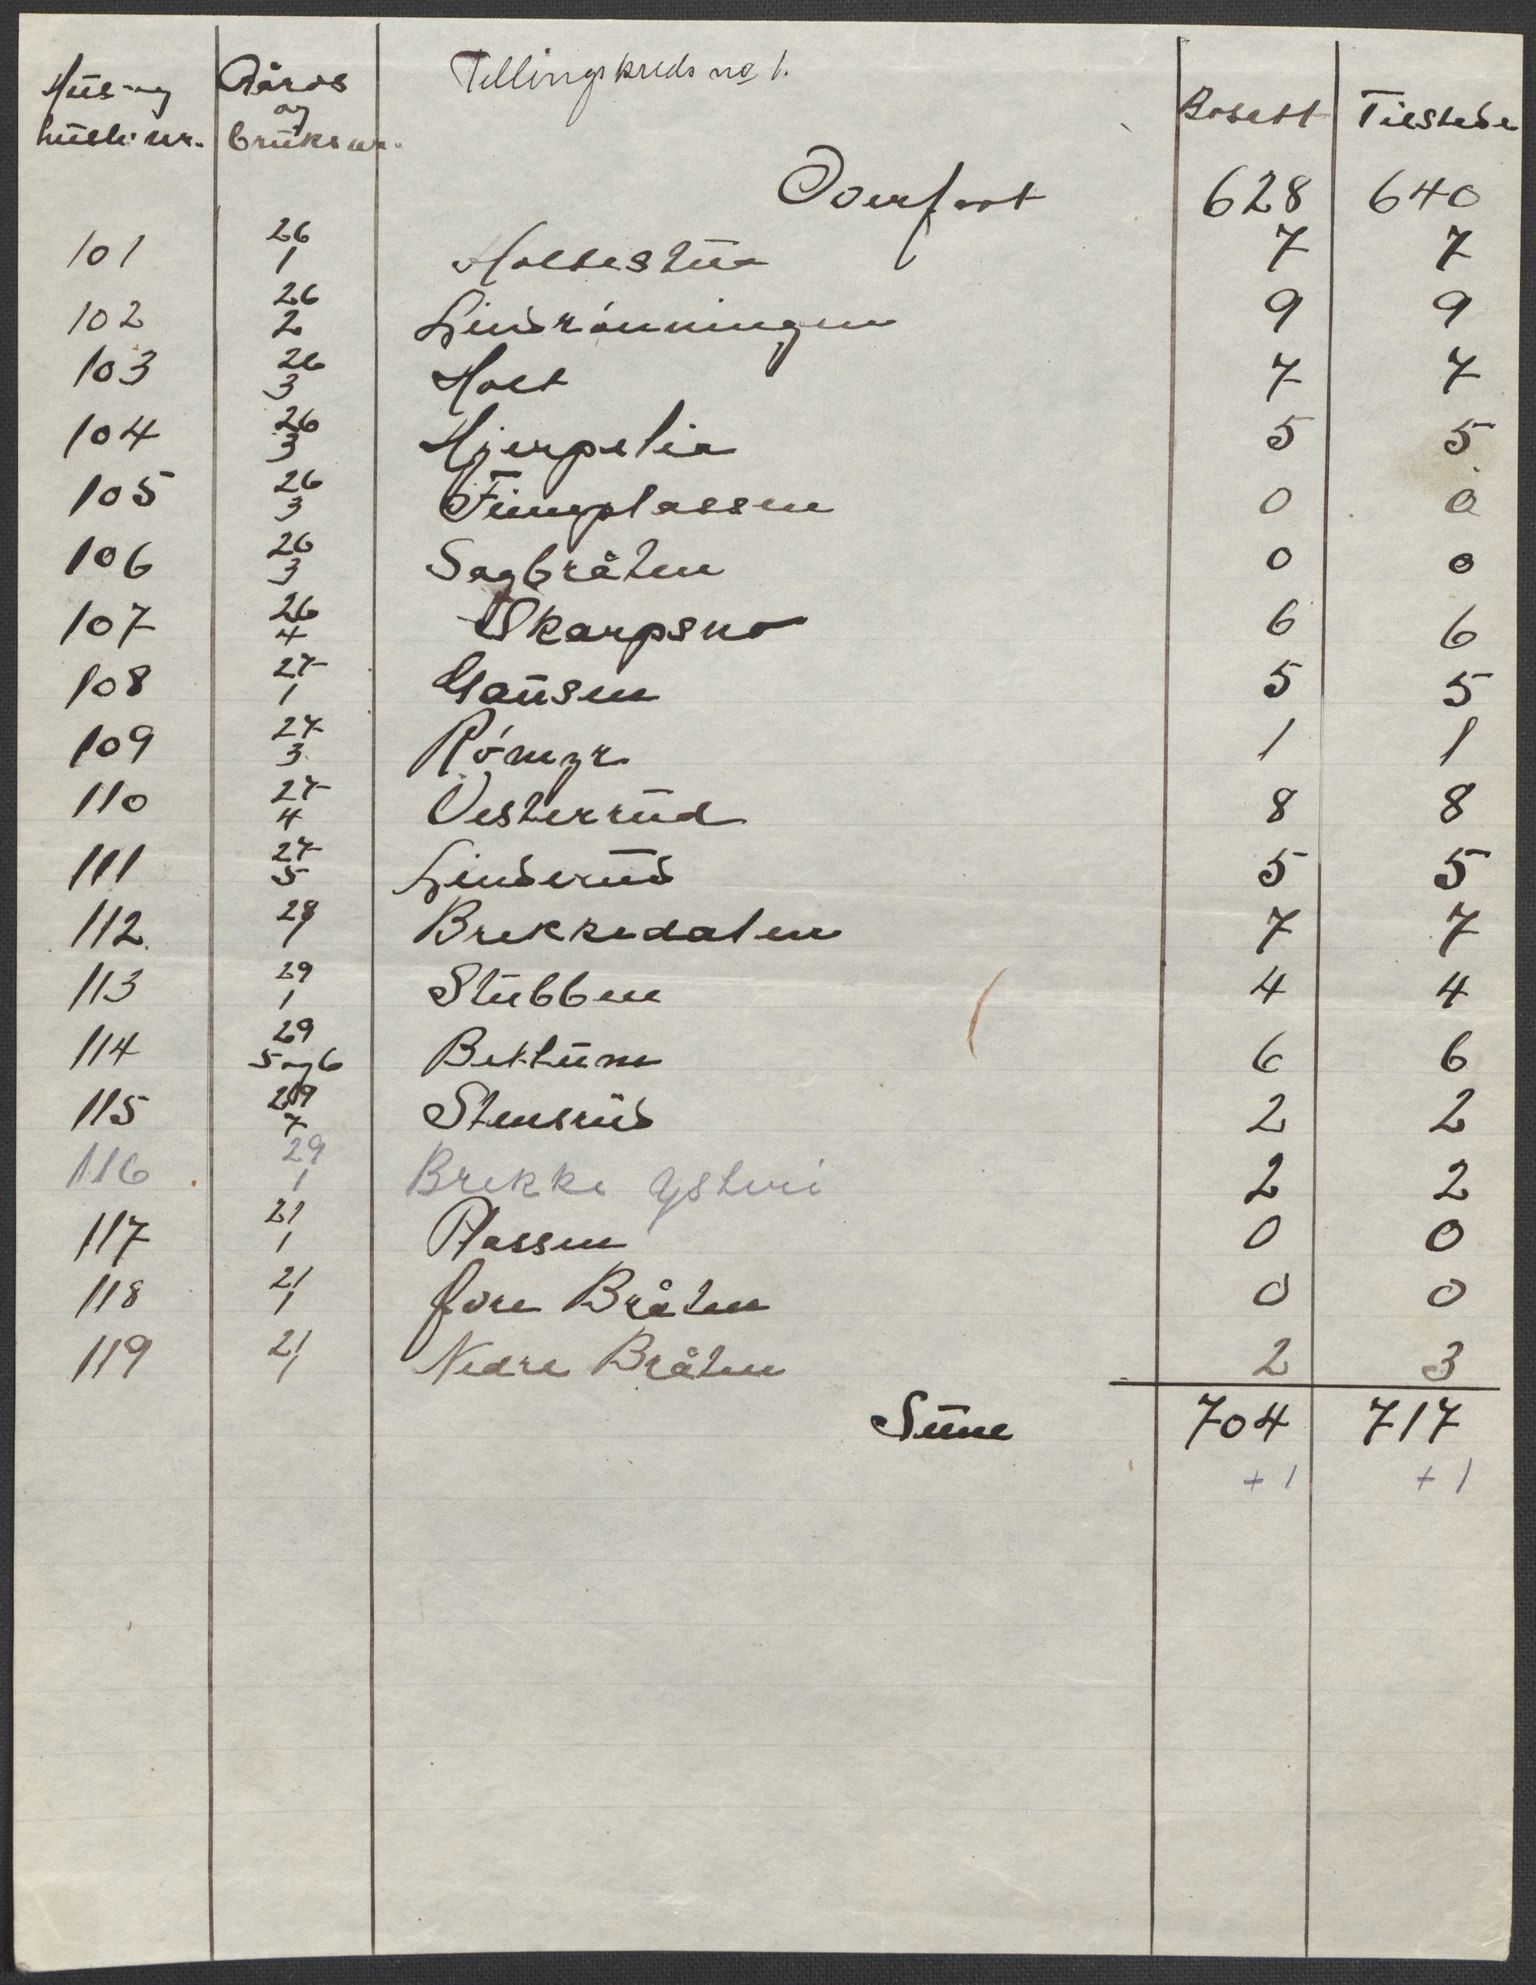 Tellingskreds no 1.
Hus- og hush. nr. Gårds og bruksnr. Bosatt Tilstede
Overført 628 640
101 26/1 Holtestua 7 7
102 26/2 Lindrønningen 9 9
103 26/3 Holt 7 7
104 26/3 Hjerpelia 5 5
105 26/3 Finneplassen 0 0
106 26/3 Sagbråten 0 0
107 26/4 Skarpsno 6 6
108 27/1 Gausen 5 5
109 27/3 Rómyr 1 1
110 27/4 Vesterrud 8 8
111 27/5 Linderud 5 5
112 28/1 Brekkedalen 7 7
113 29/1 Stubben 4 4
114 29/5 og 6 Bektum 6 6
115 29/7 Stensrud 2 2
116 29/1 Brekke ysteri 2 2
117 21/1 Plassen 0 0
118 21/1 Øvre Bråten 0 0
119 21/1 Nedre Bråten 2 3
Sum 704 717
+1 +1